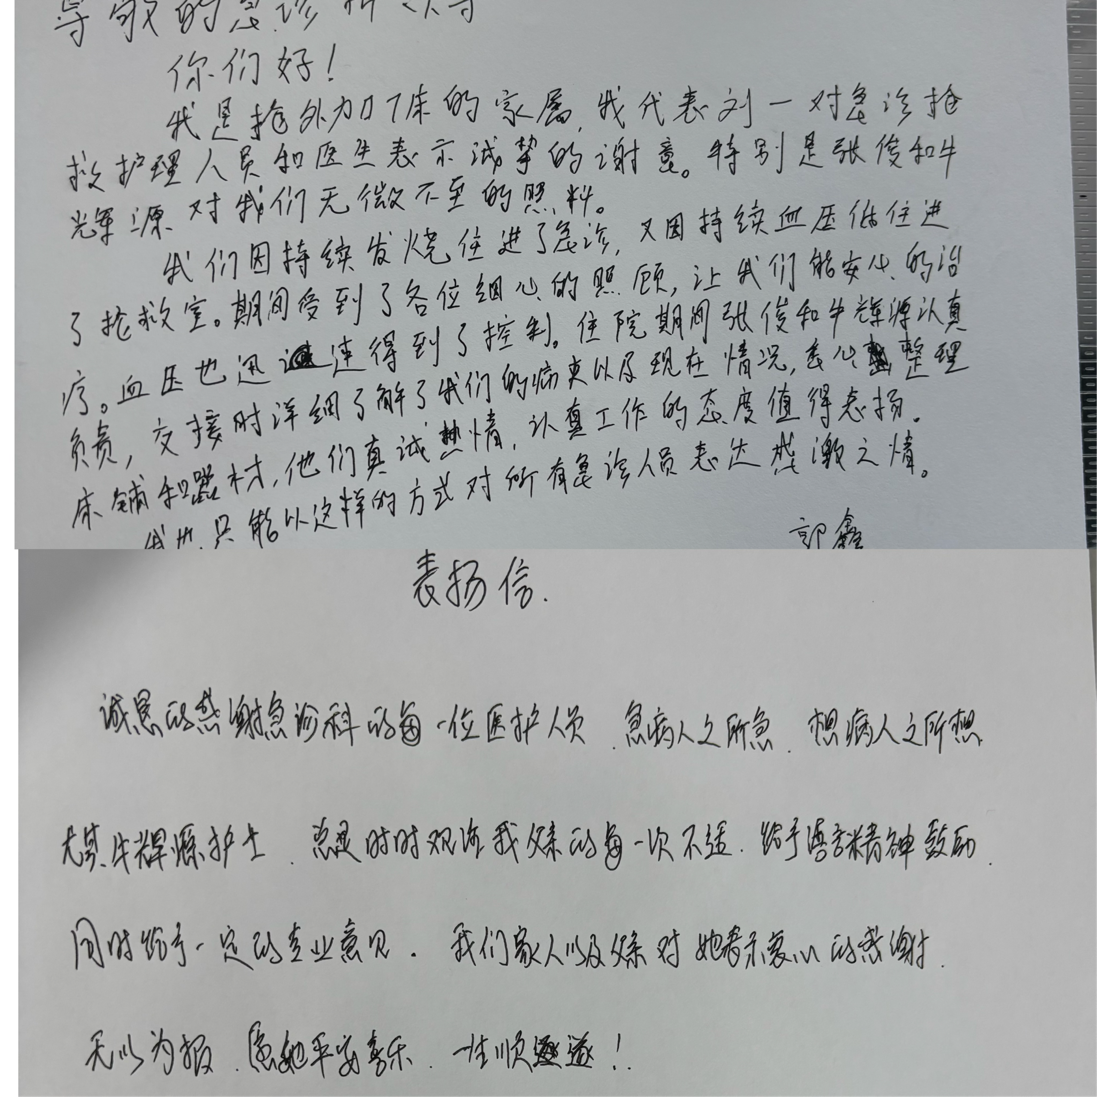 尊敬的急诊科领导
你们好!
我是抢外加7床的家属,我代表刘一对急诊抢
救护理人员和医生表示诚挚的谢意。特别是张俊和牛
辉源对我们无微不至的照料。
我们因持续发烧住进了急诊,又因持续血压低住进
了抢救室。期间受到了各位细心的照顾,让我们能安心的治
疗。血压也迅速得到了控制。住院期间张俊和牛辉源认真
负责,交接时详细了解了我们的病史以及现在情况,悉心整理
床铺和器材,他们真诚热情,认真工作的态度值得表扬。
我也只能以这样的方式对所有急诊人员表达感激之情。
郭鑫
表扬信.
诚恳的感谢急诊科的每一位医护人员.急病人之所急.想病人之所想
尤其牛辉源护士.总是时时观注我父亲的每一次不适.给予语言精神鼓励.
同时给予一定的专业意见.我们家人以及父亲对她表示衷心的感谢.
无以为报.愿她平安喜乐.一生顺遂!